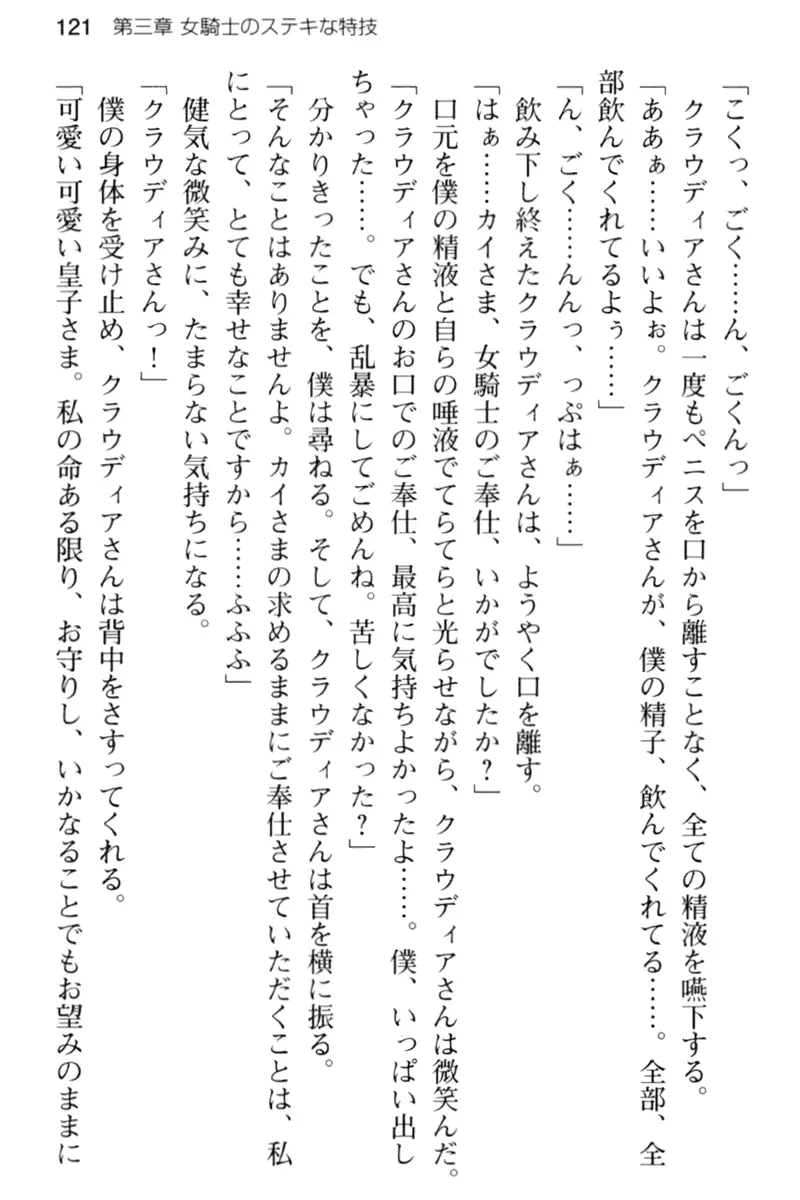 121 第三章 女騎士のステキな特技
「こくっ、ごく……ん、ごくんっ」
クラウディアさんは一度もペニスを口から離すことなく、全ての精液を嚥下する。
「ああぁ……いいよぉ。クラウディアさんが、僕の精子、飲んでくれてる……。全部、全
部飲んでくれてるよぅ……」
「ん、ごく……んんっ、っぷはぁ……」
飲み下し終えたクラウディアさんは、ようやく口を離す。
「はぁ……カイさま、女騎士のご奉仕、いかがでしたか?」
口元を僕の精液と自らの唾液でてらてらと光らせながら、クラウディアさんは微笑んだ。
「クラウディアさんのお口でのご奉仕、最高に気持ちよかったよ……。僕、いっぱい出し
ちゃった……。でも、乱暴にしてごめんね。苦しくなかった?」
分かりきったことを、僕は尋ねる。そして、クラウディアさんは首を横に振る。
「そんなことはありませんよ。カイさまの求めるままにご奉仕させていただくことは、私
にとって、とても幸せなことですから……ふふふ」
健気な微笑みに、たまらない気持ちになる。
「クラウディアさんっ!」
僕の身体を受け止め、クラウディアさんは背中をさすってくれる。
「可愛い可愛い皇子さま。私の命ある限り、お守りし、いかなることでもお望みのままに